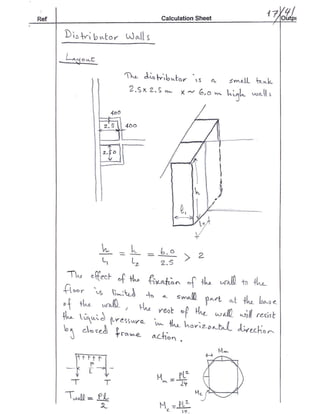 17/4/
Ref Calculation Sheet Outpu
Distributor Walls
Layout
The distributor is a small tank
2.5 x 2.5 m x ~ 6.0 m high walls
400
2.5 400
2.50
h
l₁
h/L₁ = h/L₂ = 6.0/2.5 > 2
The effect of the fixation of the wall to the
floor is limited to a small part at the base
of the wall, the rest of the wall will resist
the liquid pressure in the horizontal direction
by closed frame action.
P
L
T T
T wall = PL/2
M m = PL²/24
M c = PL²/12
M m
M c